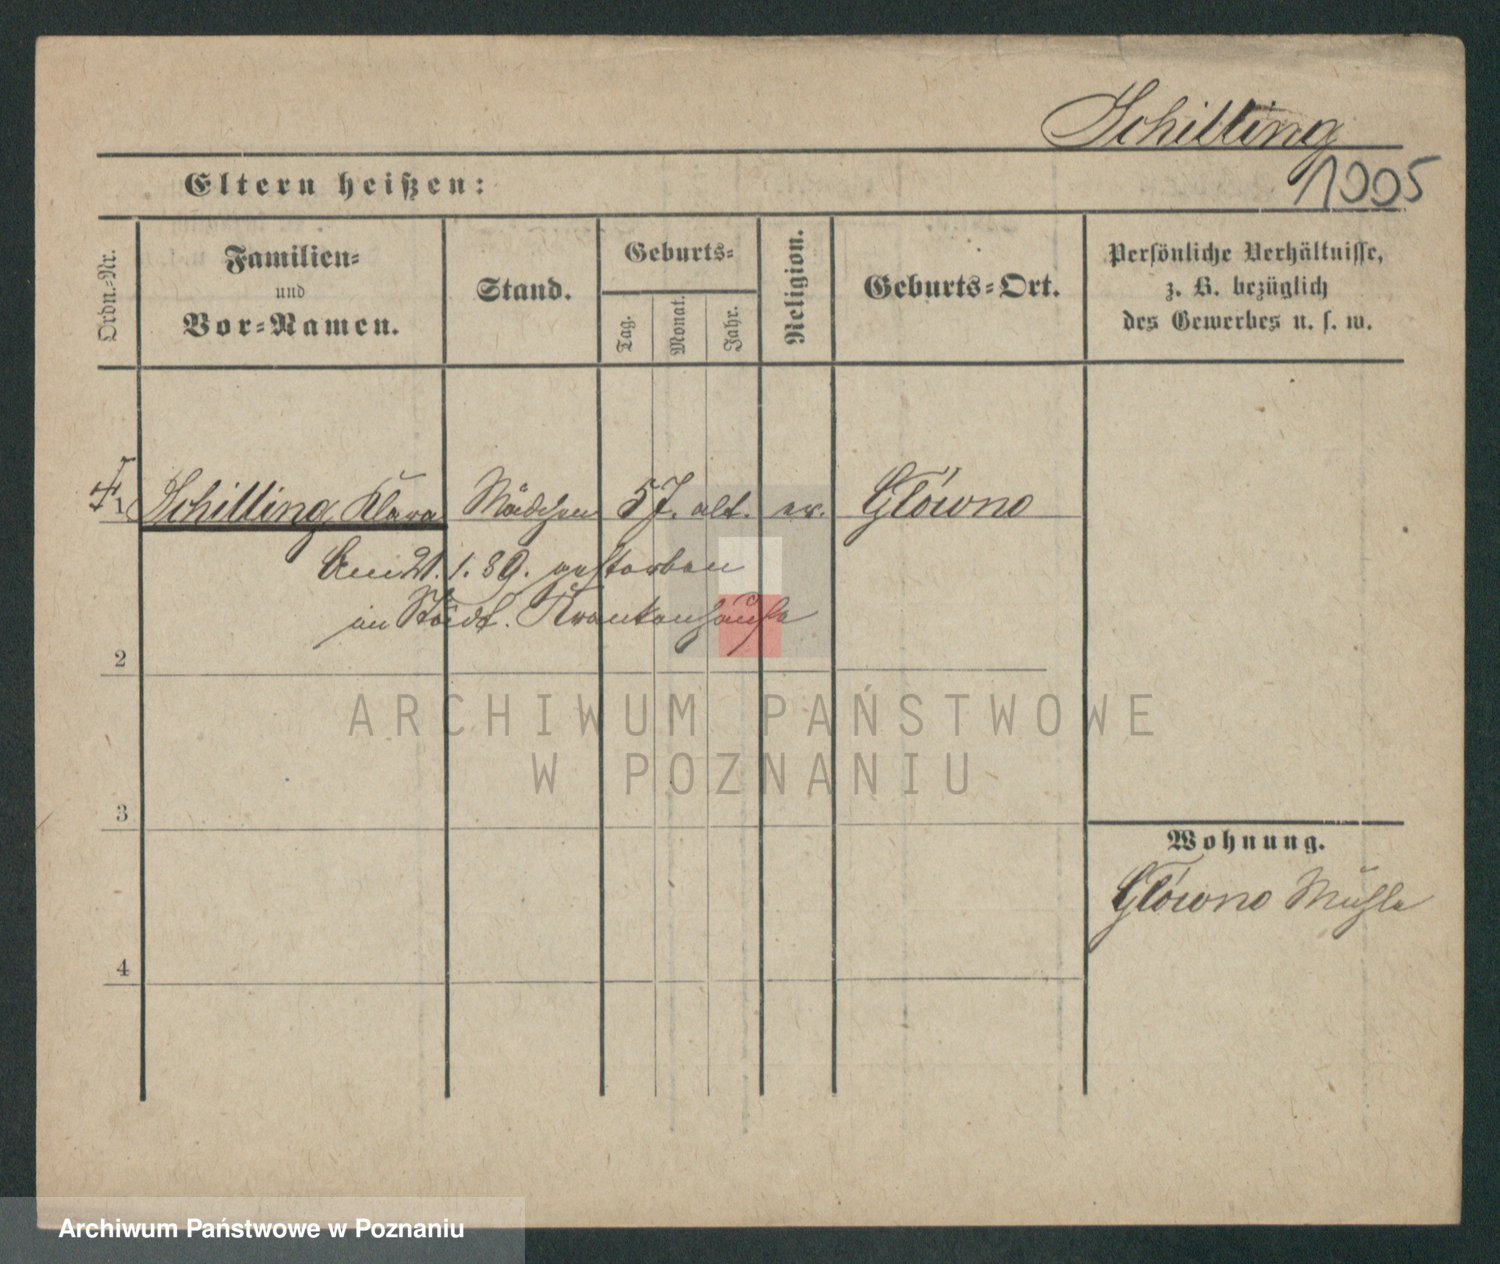 Schilling
1005
Eltern heißen:
Ordn.-Nr.
Familien-
und
Vor-Namen.
Stand.
Geburts-
Tag.
Monat.
Jahr.
Religion.
Geburts-Ort.
Persönliche Verhältnisse,
z. B. bezüglich
des Gewerbes u. s. w.
1 Schilling Klara Mädchen 5 J. alt. ev. Główno
Am 21.1.89. gestorben
im Städt. Krankenhause
2
ARCHIWUM PAŃSTWOWE
W POZNANIU
3
Wohnung.
Główno Mühle
4
Archiwum Państwowe w Poznaniu